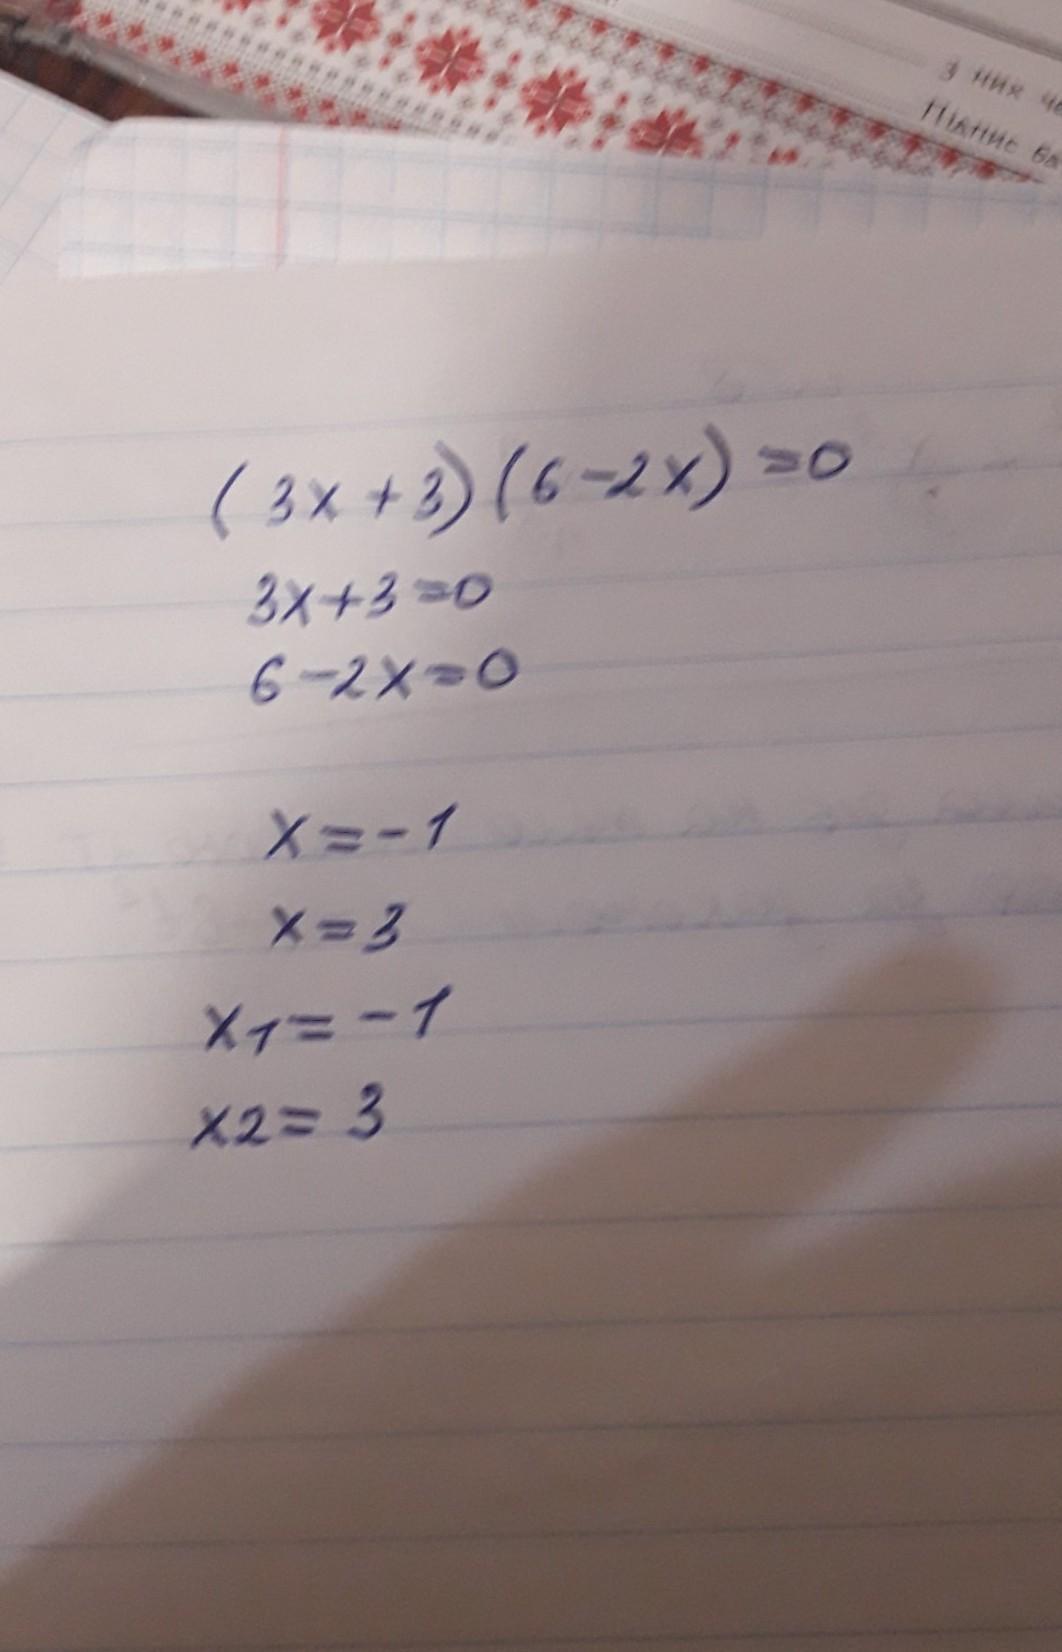 з них
(3x+3)(6-2x)=0
3x+3=0
6-2x=0
x=-1
x=3
x1=-1
x2=3